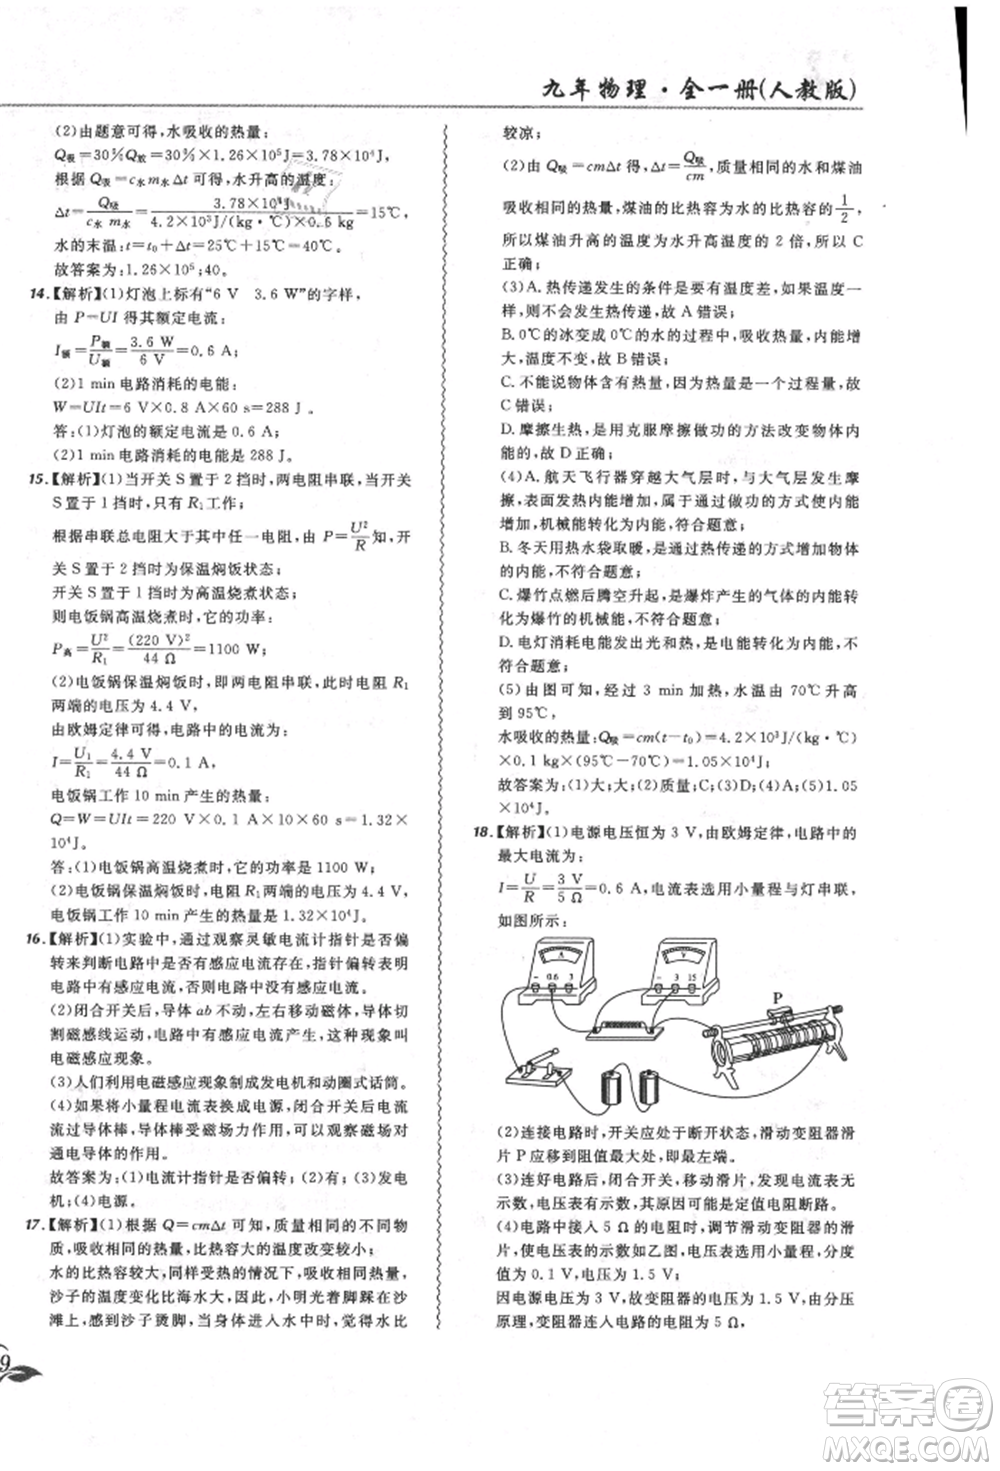 九年物理·全一册(人教版)
(2)由题意可得,水吸收的热量:
Q吸=30%Q放=30%×1.26×10⁵J=3.78×10⁴J,
根据 Q吸=c水m水Δt可得,水升高的温度:
Δt=Q吸/(c水 m水)=3.78×10⁴J/(4.2×10³J/(kg·℃)×0.6 kg)=15℃,
水的末温:t=t₀+Δt=25℃+15℃=40℃。
故答案为:1.26×10⁵;40。
14.【解析】(1)灯泡上标有“6 V 3.6 W”的字样,
由 P=UI 得其额定电流:
I额=P额/U额=3.6 W/6 V=0.6 A;
(2)1 min 电路消耗的电能:
W=UIt=6 V×0.8 A×60 s=288 J。
答:(1)灯泡的额定电流是 0.6 A;
(2)1 min 电路消耗的电能是 288 J。
15.【解析】(1)当开关 S 置于 2 挡时,两电阻串联,当开关
S 置于 1 挡时,只有 R₁工作;
根据串联总电阻大于其中任一电阻,由 P=U²/R知,开
关 S 置于 2 挡时为保温焖饭状态;
开关 S 置于 1 挡时为高温烧煮状态;
则电饭锅高温烧煮时,它的功率:
P高=U²/R₁=(220 V)²/44 Ω=1100 W;
(2)电饭锅保温焖饭时,即两电阻串联时,电阻 R₁
两端的电压为 4.4 V,
由欧姆定律可得,电路中的电流为:
I=U₁/R₁=4.4 V/44 Ω=0.1 A,
电饭锅工作 10 min 产生的热量:
Q=W=UIt=220 V×0.1 A×10×60 s=1.32×
10⁴J。
答:(1)电饭锅高温烧煮时,它的功率是 1100 W;
(2)电饭锅保温焖饭时,电阻 R₁ 两端的电压为 4.4 V,
电饭锅工作 10 min 产生的热量是 1.32×10⁴J。
16.【解析】(1)实验中,通过观察灵敏电流计指针是否偏
转来判断电路中是否有感应电流,指针偏转表明
电路中有感应电流,否则无感应电流;
(2)闭合开关后,导体 ab 不动,左右移动磁体,导体切
割磁感线运动,电路中有感应电流产生,这种现象叫
电磁感应现象。
(3)人们利用电磁感应现象制成发电机和动圈式话筒。
(4)如果将小量程电流表换成电源,闭合开关后,电
流流过导体棒,导体棒受磁场力作用,可以观察磁场对
通电导体的作用。
故答案为:(1)电流计指针是否偏转;(3)发电
机;(4)电源。
17.【解析】(1)根据 Q=cmΔt 可知,质量相同的不同物
质,吸收相同的热量,比热容大的温度改变较小;
水的比热容较大,同样受热的情况下,吸收相同热量时,
沙子的温度变化比海水大,故小明光着脚踩在沙
滩上,感觉沙子烫脚,当他进入水中时,觉得水比
较凉;
(2)由 Q吸=cmΔt 得,Δt=Q吸/cm,质量相同的水和煤油
吸收相同的热量,煤油的比热容为水的比热容的 1/2,
所以煤油升高的温度为水升高温度的 2 倍,所以 C
正确;
(3)A. 热传递发生的条件是有温度差,温度相同,
则不会发生热传递,故 A 错误;
B. 0℃的冰变成 0℃的水的过程中,吸收热量,内能增
大,温度不变,故 B 错误;
C. 不能说物体含有热量,热量是一个过程量,故
C 错误;
D. 摩擦生热,是用克服摩擦做功的方法改变物体内能
的,故 D 正确;
(4)A. 航天飞行器穿越大气层时,与大气层发生摩
擦,表面发热发光,属于通过做功的方式使物体内能
增加,机械能转化为内能,符合题意;
B. 冬天用热水袋取暖,是通过热传递的方式增加物体
的内能,不符合题意;
C. 爆竹点燃后腾空升高,是爆炸产生的气体的内能转化
为爆竹的机械能,不符合题意;
D. 电灯消耗电能发出光和热,是电能转化为内能,不
符合题意;
(5)由图可知,经过 3 min 加热,水温由 70℃升高
到 95℃,
水吸收的热量:Q吸=cm(t-t₀)=4.2×10³J/(kg·℃)
×0.1 kg×(95℃-70℃)=1.05×10⁴J。
故答案为:(1)大;大;(2)质量;C;(3)D;(4)A;(5)1.05
×10⁴J。
18.【解析】(1)电源电压恒为 3 V,由欧姆定律,电路中的
最大电流为:
I=U/R=3 V/5 Ω=0.6 A,电流表选用小量程与灯串联,
如图所示:
- 0.6 3
- 3 15
P
(2)连接电路时,开关应处于断开状态,滑动变阻器滑
片 P 应移到阻值最大处,即最左端。
(3)连接电路后,闭合开关,移动滑片,发现电流表无
示数,电压表有示数,原因可能是定值电阻断路。
(4)电路中接入 5 Ω 的电阻时,调节滑动变阻器的滑
片,电压表的示数如乙图,电压表选用小量程,分度
值为 0.1 V,电压为 1.5 V;
因电源电压为 3 V,故变阻器的电压为 1.5 V,由分压
原理,变阻器连入电路的电阻为 5 Ω,
9
答案圈
MXQE.COM